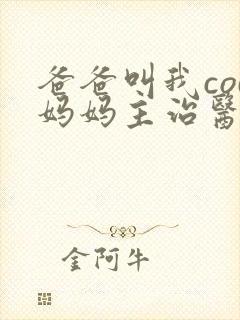 爸爸叫我co
妈妈主治醫
金阿牛